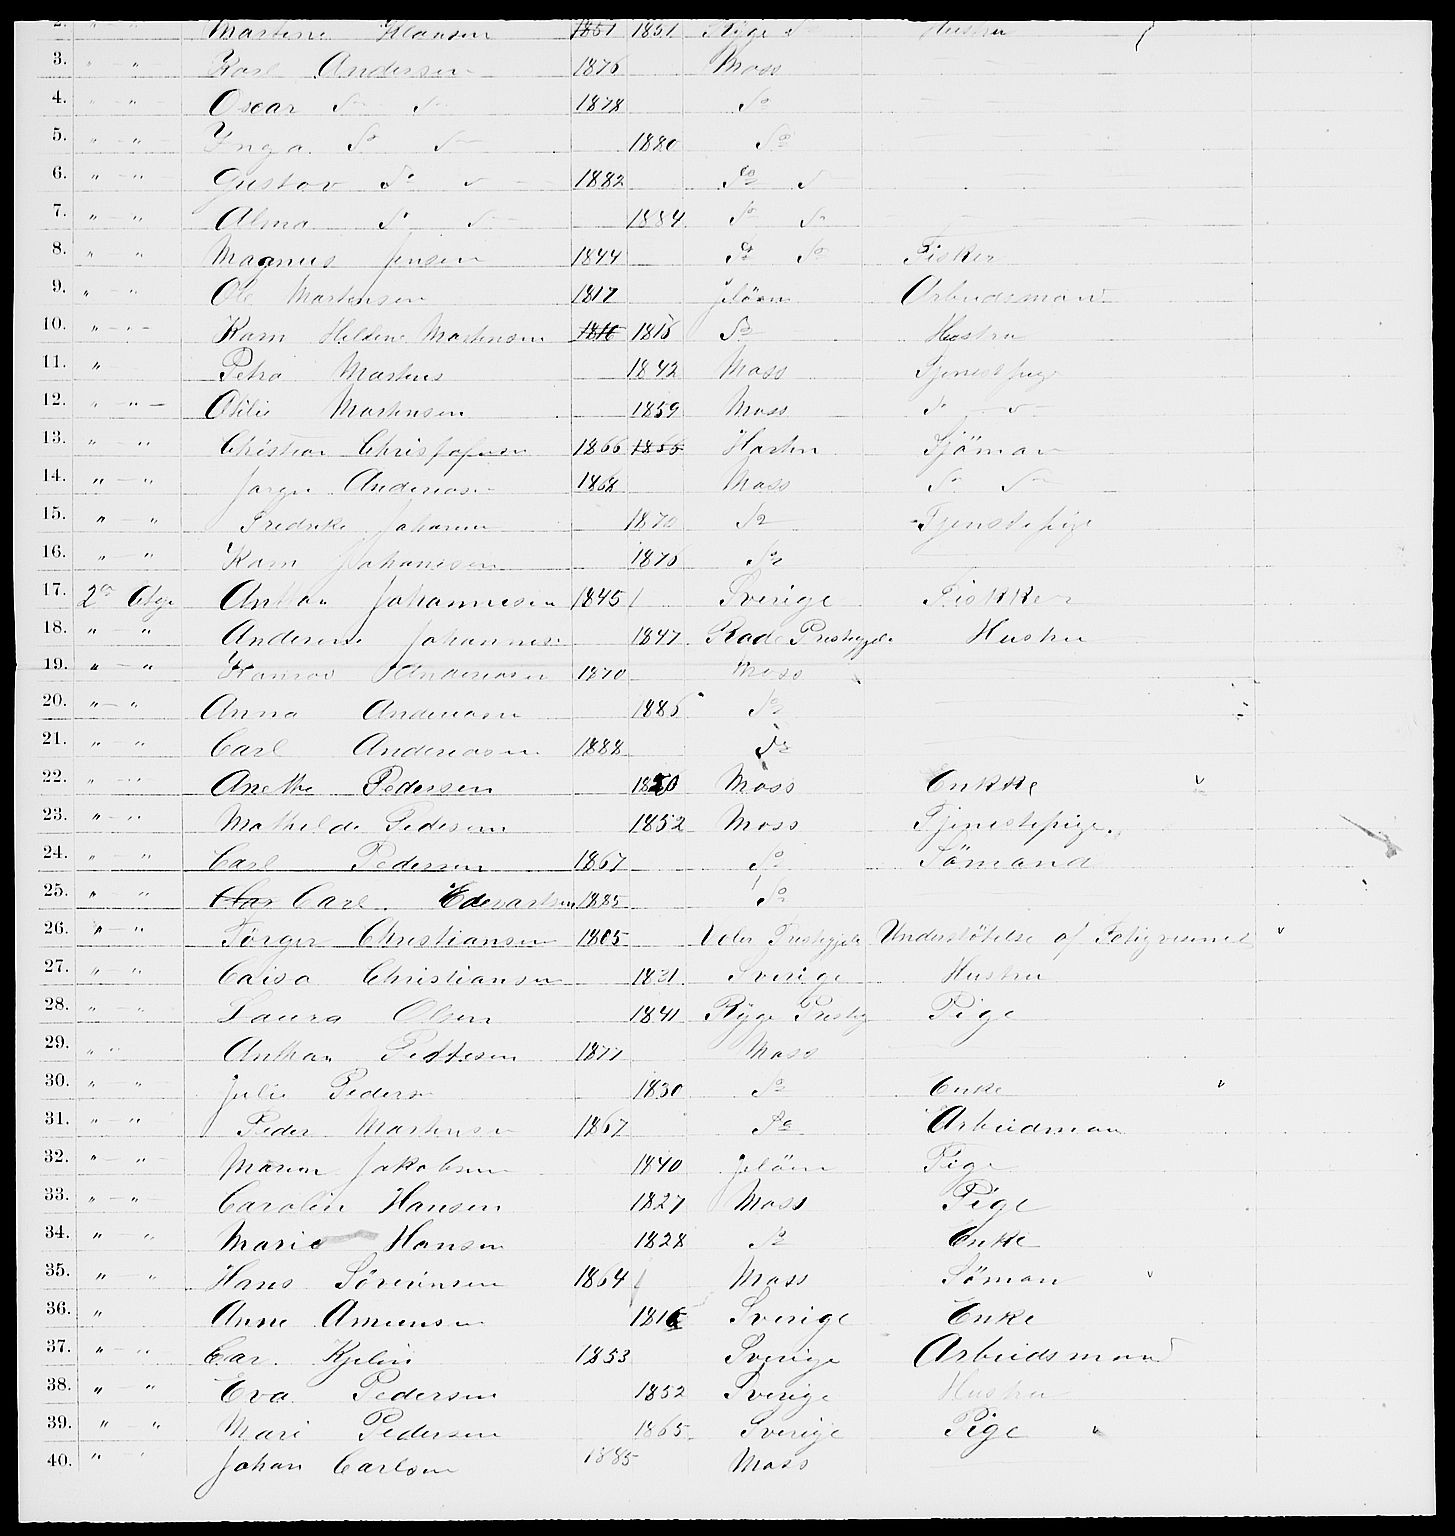 2. " - " Martine Hansen 1851 1851 Rÿge Do Hustru
3. " - " Karl Andersen 1876 Moss
4. " - " Oscar Do Do 1878 Do
5. " - " Ynga Do Do 1880 Do
6. " - " Gustav Do Do 1882 Do Do
7. " - " Alma Do Do 1884 Do Do
8. " - " Magnus Jensen 1844 Do Do Fisker
9. " - " Ole Martensen 1817 Jelöen Arbeidsmand
10. " - " Karn Heldene Martensen 1816 1815 Do Hustru
11. " Petra Martens 1842 Moss Tjenestpige
12. " - " Otilie Martensen 1859 Moss Do Do
13. " - " Christian Christofersen 1866 1866 Horten Sjöman
14. " - " Jørgen Andreasen 1868 Moss Do Do
15. " - " Fredrike Johanne 1870 Do Tjenstepige
16. " - " Karn Johannesen 1876 Do
17. 2den Etge Anthon Johannesen 1845 Sverige Fiskker
18. " " Anderine Johannesen 1847 Rade Prestegjeld Hustru
19. " - " Konrad Andreasen 1870 Moss
20. " - " Anna Andreasen 1885 Do
21. " - " Carl Andreasen 1888 Do
22. " - " Anethe Pedersen 1820 Moss Enkke
23. " - " Mathilde Pedersen 1852 Moss Tjenestepige
24. " - " Carl Pedersen 1867 Do Sömand
25. " - " Carl Edevartsen 1885 Do
26. " - " Törger Christiansen 1805 Voler Prestegjeld Understötelse af Fatigvesenet
27. " - " Caisa Christiansen 1831 Sverige Hustru
28. " - " Laura Olsen 1841 Rÿge Presteg Pige
29. " - " Anthon Pettesen 1877 Moss
30. " - " Julie Peders 1830 Do Enke
31. " - " Peder Martensen 1867 Do Arbeidman
32. " - " Maren Jakobsen 1840 Jelöen Pige
33. " - " Carolin Hansen 1827 Moss Pige
34. " - " Marie Hansen 1828 Do Enke
35. " - " Hans Sörensen 1864 Moss Söman
36. " Anne Amunsen 1816 Sverige Enke
37. " - " Car. Kjelin 1853 Sverige Arbeidsmand
38. " - " Eva Pedersen 1852 Sverige Hustru
39. " - " Mari Pedersen 1865 Sverige Pige
40. " - " Johan Carlsen 1885 Moss